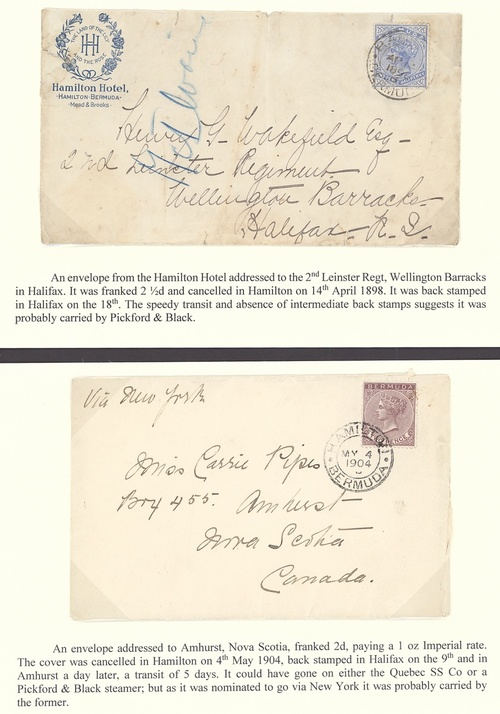 THE LAND OF THE LILY
AND THE ROSE
HH
Hamilton Hotel,
-HAMILTON-BERMUDA-
Mead & Brooks-
BERMUDA
Henry G. Wakefield Esq-
2nd Leinster Regiment-
Wellington Barracks-
Halifax- N.S.
An envelope from the Hamilton Hotel addressed to the 2nd Leinster Regt, Wellington Barracks
in Halifax. It was franked 2 ½d and cancelled in Hamilton on 14th April 1898. It was back stamped
in Halifax on the 18th. The speedy transit and absence of intermediate back stamps suggests it was
probably carried by Pickford & Black.
Via New York
BERMUDA
HAMILTON
MY 4
1904
BERMUDA
Miss Carrie Pipes
Box 455. Amherst
Nova Scotia
Canada.
An envelope addressed to Amhurst, Nova Scotia, franked 2d, paying a 1 oz Imperial rate.
The cover was cancelled in Hamilton on 4th May 1904, back stamped in Halifax on the 9th and in
Amhurst a day later, a transit of 5 days. It could have gone on either the Quebec SS Co or a
Pickford & Black steamer; but as it was nominated to go via New York it was probably carried by
the former.